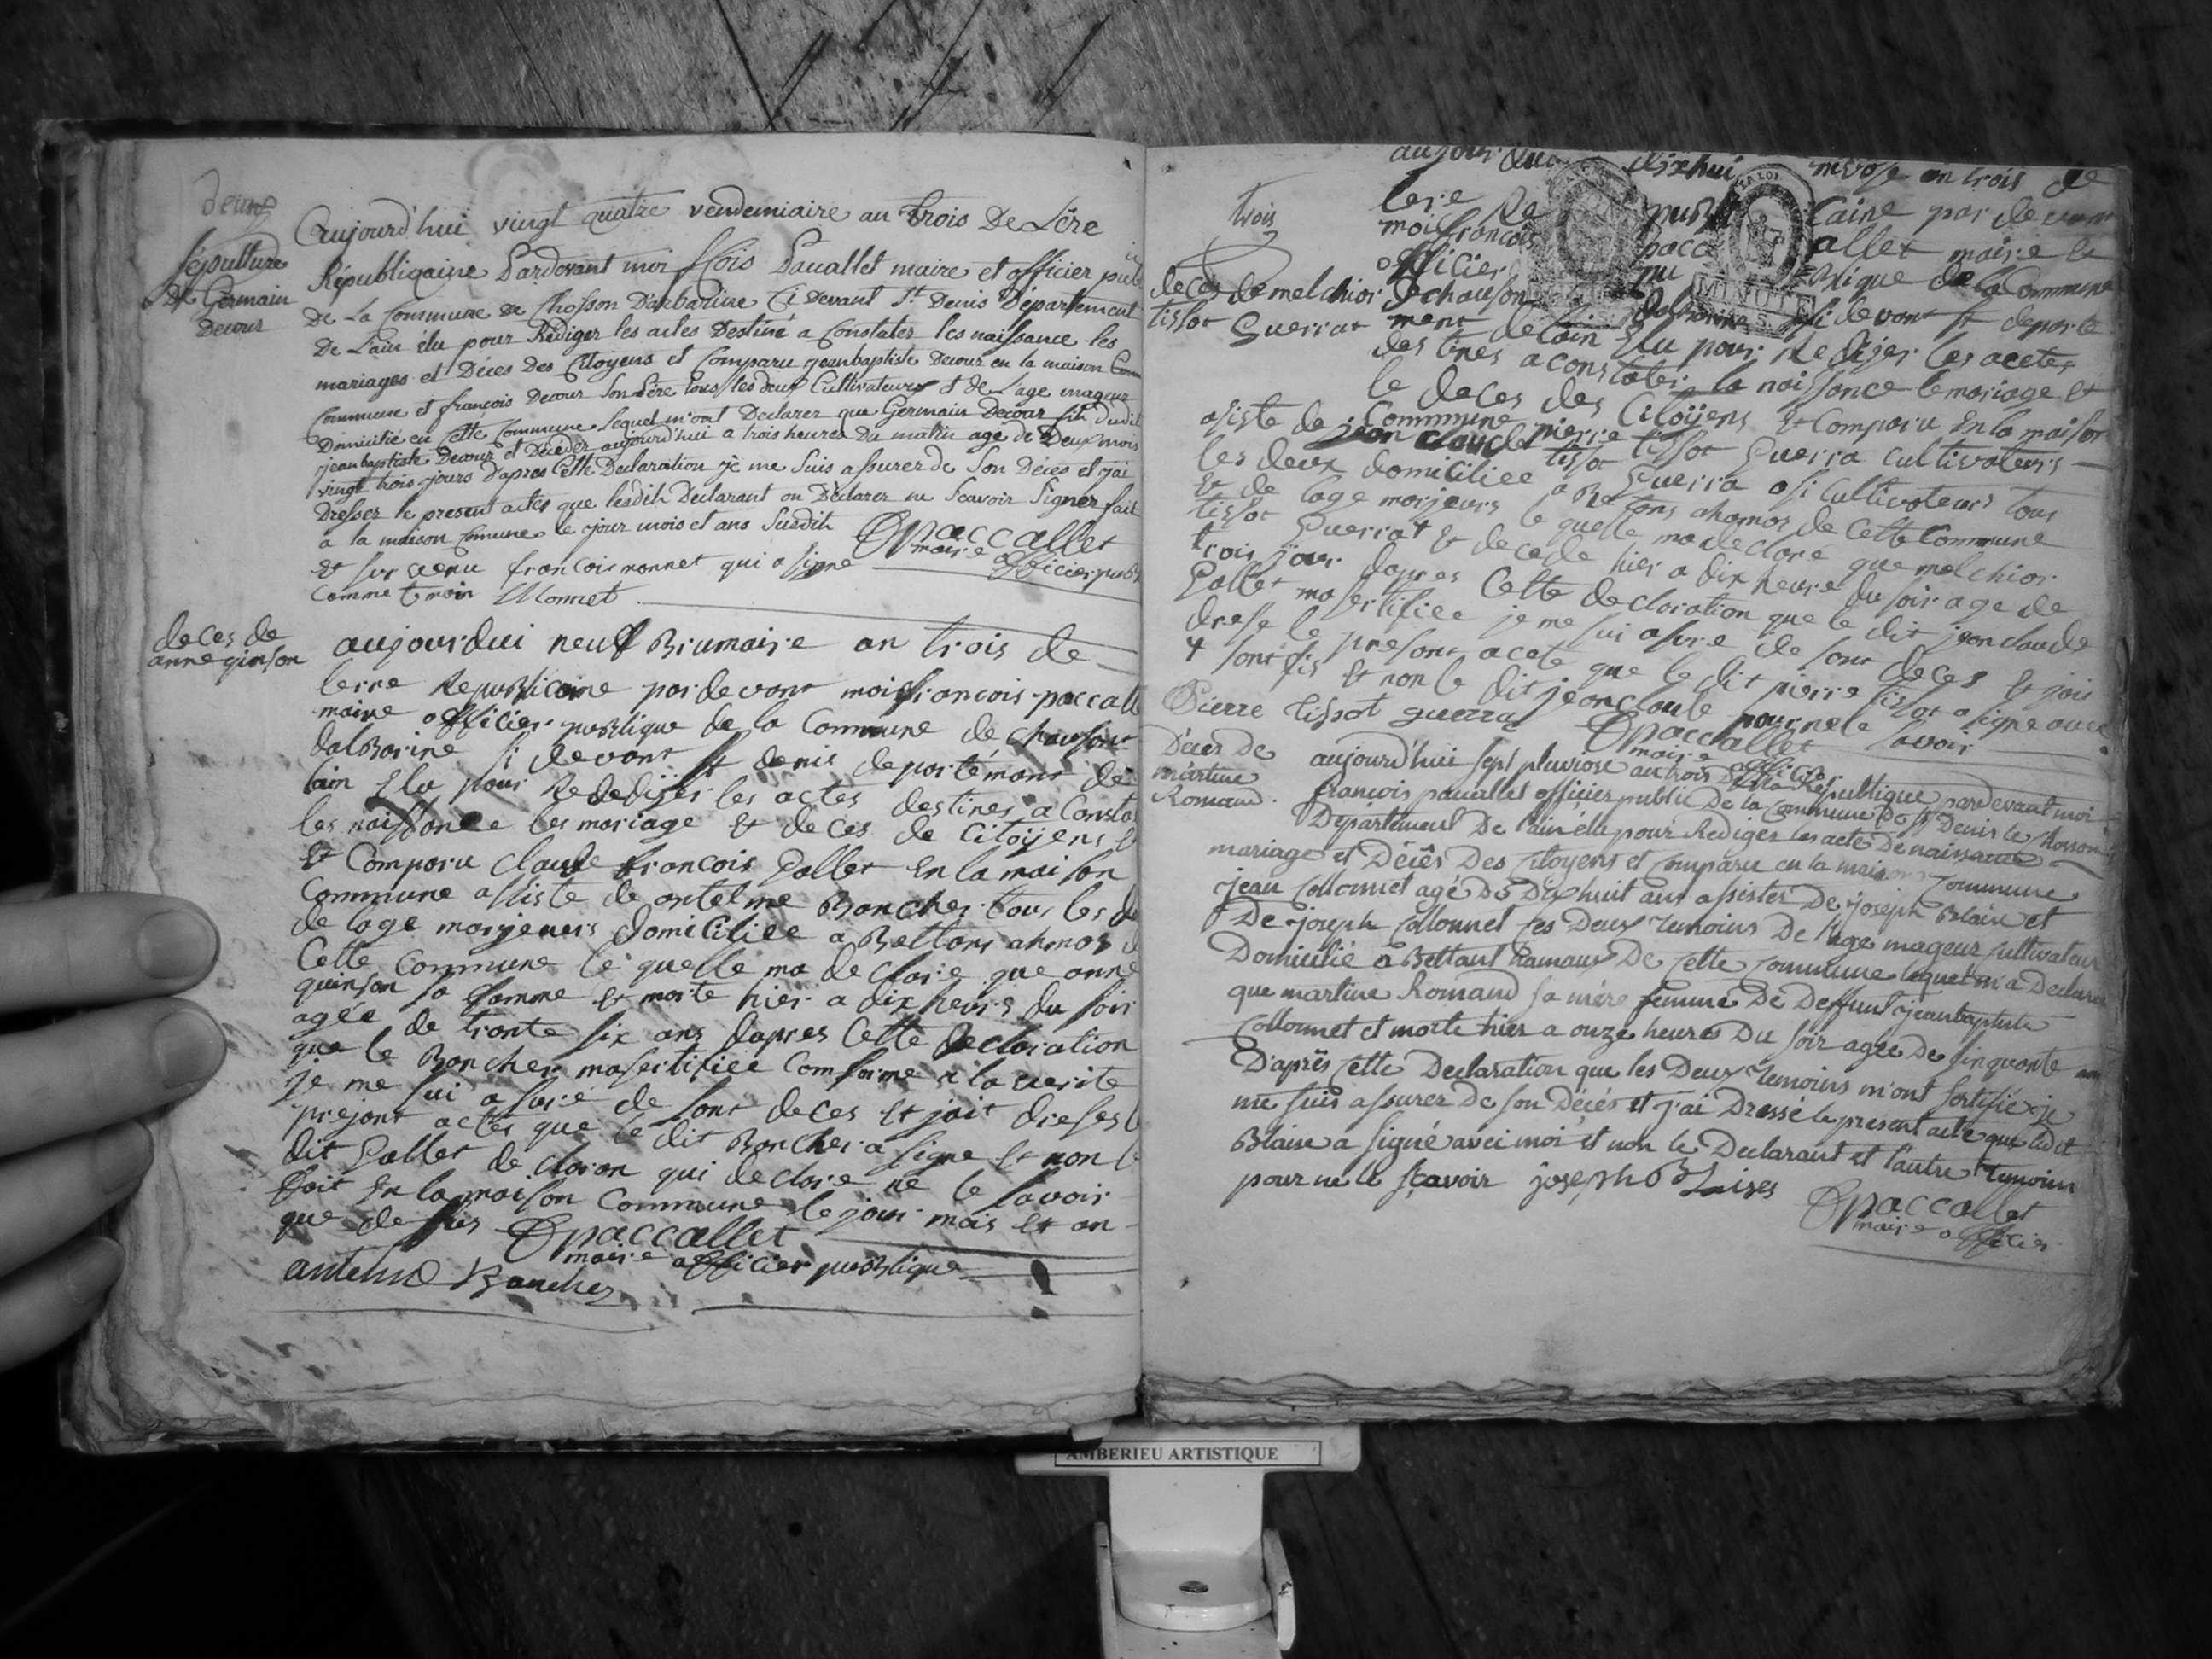 deux
Sépulture
De Germain
Decour
aujourd'hui vingt quatre vendemiaire an trois De Lêre
Républiqaine Pardevant moi fcois Pacallet maire et officier pub
De La Commune de Chosson Dalbarine Ci Devant St. Denis Département
De L'ain élu pour Rédiger les actes Destiné a Constater les naissance les
mariages et Déces Des Citoyens et Comparu jeanbaptiste Decour en la maison Com
Commune et francois Decour Son Pére tous les deux Cultivateurs et de L'age mageur
Domicilié en Cette Commune lequel m'ont Declarer que Germain Decour fils dudit
jeanbaptiste Decour et Décéder aujourd'hui a trois heures Du matin agé de Deux mois
vingt trois jours D'apres Cette Declaration je me Suis assurer de Son Déces et j'ai
Dresser le present actes que lesdits Declarant on Déclarer ne Scavoir Signer fait
a la maison Comune le jour mois et ans Susdith
paccallet
maire officier publ
Et survenu francois monnet qui a signe
Comme temoin Monnet
deces de
anne qinson
aujourdui neuf Brumaire an trois de
lerre Republicaine pardevant moi francois paccall
maire officier publique de la Commune de Chauson
dalBarine si devant st denis departemant de
lain Elu pour Redediger les actes destines a Consta
les naissance les mariage et deces de Citoyens Et
Et Comparu Claude francois Pallet En la maison
Commune assiste de antelme Boncher tous les d
de lage marjeurs domiciliee a Bettans ahmos d
Cette Commune le quelle ma declare que anne
quinson sa famme et morte hier a dix heurs du soir
agée de trante six ans dapres Cette declaration
que le Boncher ma sertifiee Comforme a la verite
je me sui asure de sont deces et jait dreses l
presant actes que le dit Boncher a signe et non l
dit Pallet de claran qui declare ne le savoir
fait En la maison Commune le jour mois et an
que desus paccallet
maire officier publique
antelme Boucher
aujourdui dixhui nivose an trois de
Trois
lere Republicaine par devant
moi francois paccallet maire le
officier publique de la Commune
deces de melchior
tissot Guerrat
de chauson dalbarine si devant st departe
ment de lain Elu pour Rediger les acetes
des tines a constater la naissance le mariage et
le deces des Citoÿens et Comparu En la maison
Commmune pierre tissot Guerra cultivateurs
asiste de jean claude tissot Guerra osi cultivateurs tous
les deux domiciliee a Betans ahomos de Cette Commune
Et de lage marjeurs le quelle ma declare que melchior
tissot Guerrat Et decede hier a dix heure du soir age de
trois jour dapres Cette declaration que le dit jean claude
Pallet ma sertifiee je me sui asure de sont deces et jais
drese le presant acete que le dit pierre tissot a signe avec
+ sont fis Et non le dit jean claude pour ne le savoir
Pierre tissot guerra paccallet
maire officier
Déces de
martine
Romand.
aujourd'hui sept pluviose an trois de la République pardevant moi
francois paccallet officier public De la Commune De St Denis le Chosson
Département De l'ain élu pour Rediger les acte De naissance
mariage et Décés Des citoyens et comparu en la maison Commune
jean collonnet agé De Dix huit ans assister De joseph Blaise et
De joseph collonnet Ces Deux temoins De l'age mageur cultivateur
Domicilié a Bettant hamaux De Cette Commune lequel m'a Declarer
que martine Romand sa mére femme De Deffunt jeanbaptiste
Collonnet et morte hier a onze heures Du soir agée De cinquante ans
D'après cette Declaration que les Deux temoins m'ont sertifié je
me suis assurer De son Décés et j'ai Dressé le present acte que ledit
Blaise a signé avec moi et non le Declarant et l'autre temoin
pour ne le sçavoir joseph Blaises paccallet
maire officier
MINUTE
AMBERIEU ARTISTIQUE